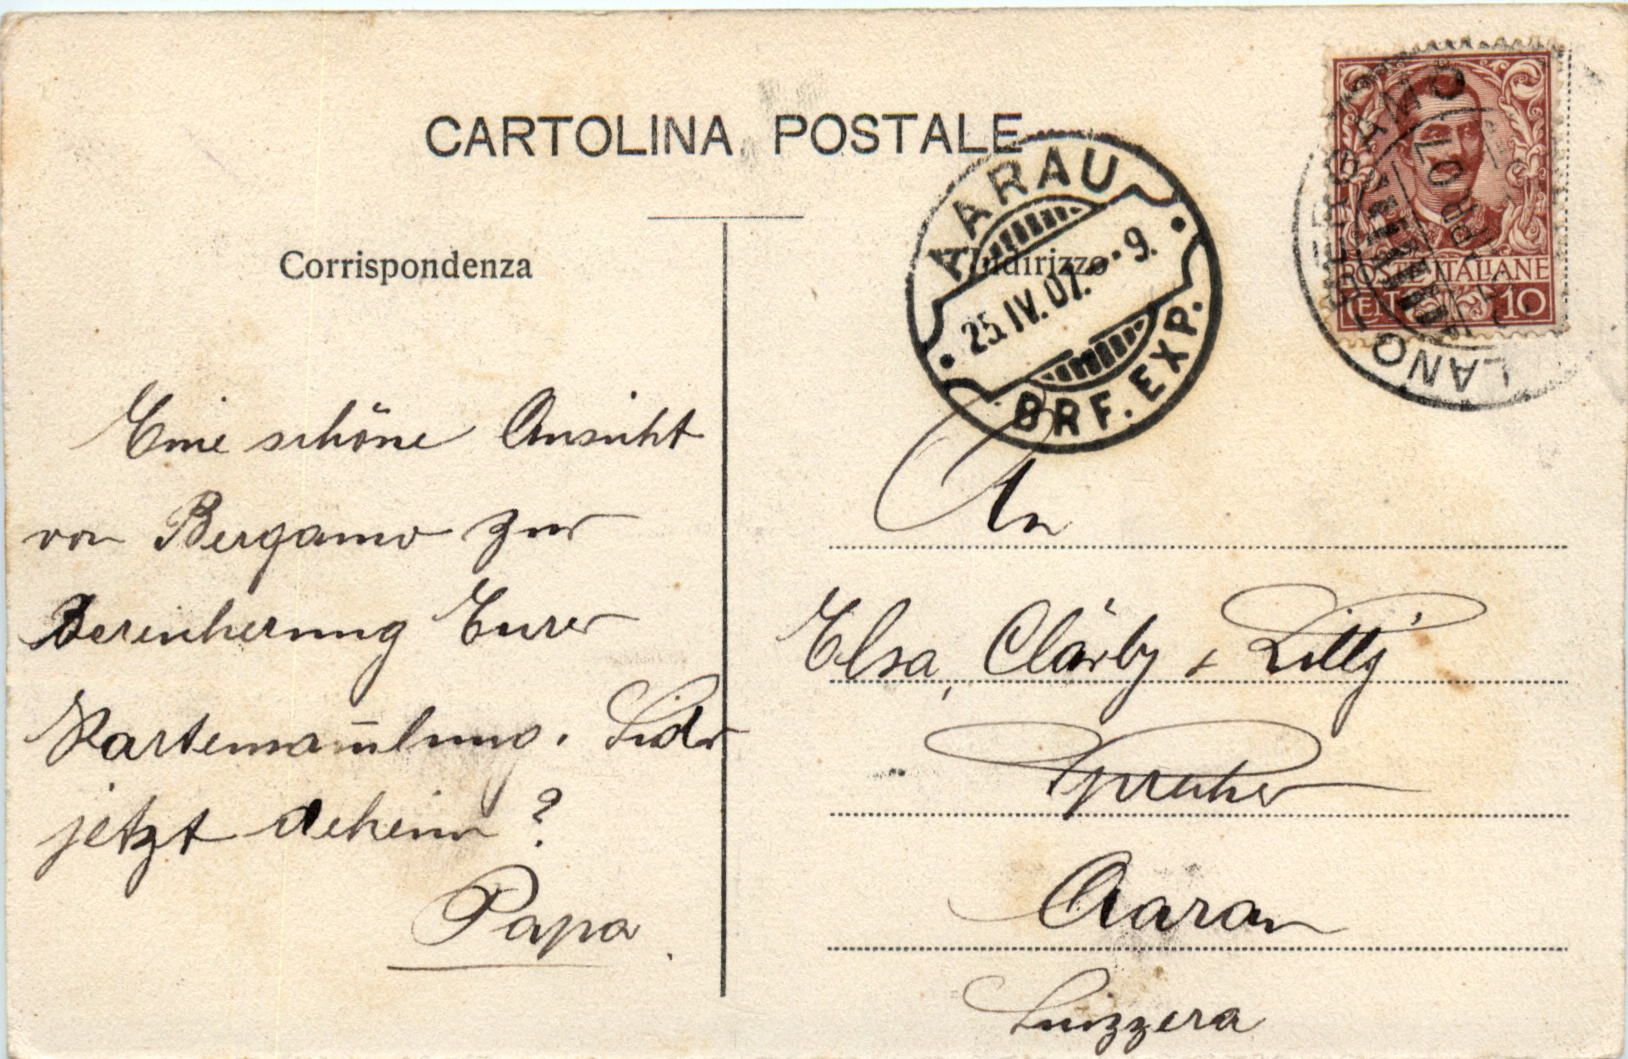 CARTOLINA POSTALE
Corrispondenza
Indirizzo
AARAU
25.IV.07.-9.
BRF. EXP.
BERGAMO
MILANO
POSTE ITALIANE
CENT 10
Eine schöne Ansicht
von Bergamo zur
Bereicherung Eurer
Kartensam̅lung. Seid Ihr
jetzt deheim?
Papa.
An
Elsa, Clärly + Lilly
Sprecher
Aarau
Suizzera